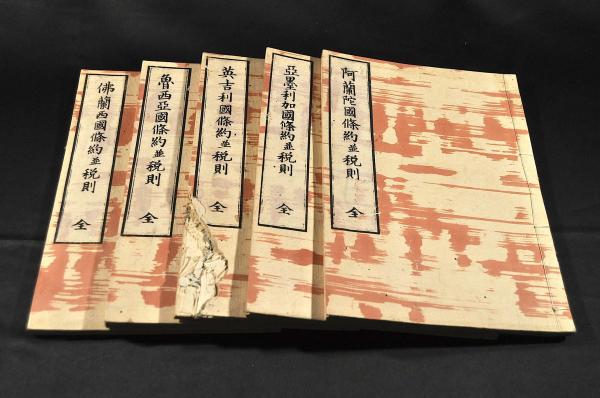 阿蘭陀國條約並税則 全
亞墨利加國條約並税則 全
英吉利國條約並税則 全
魯西亞國條約並税則 全
佛蘭西國條約並税則 全